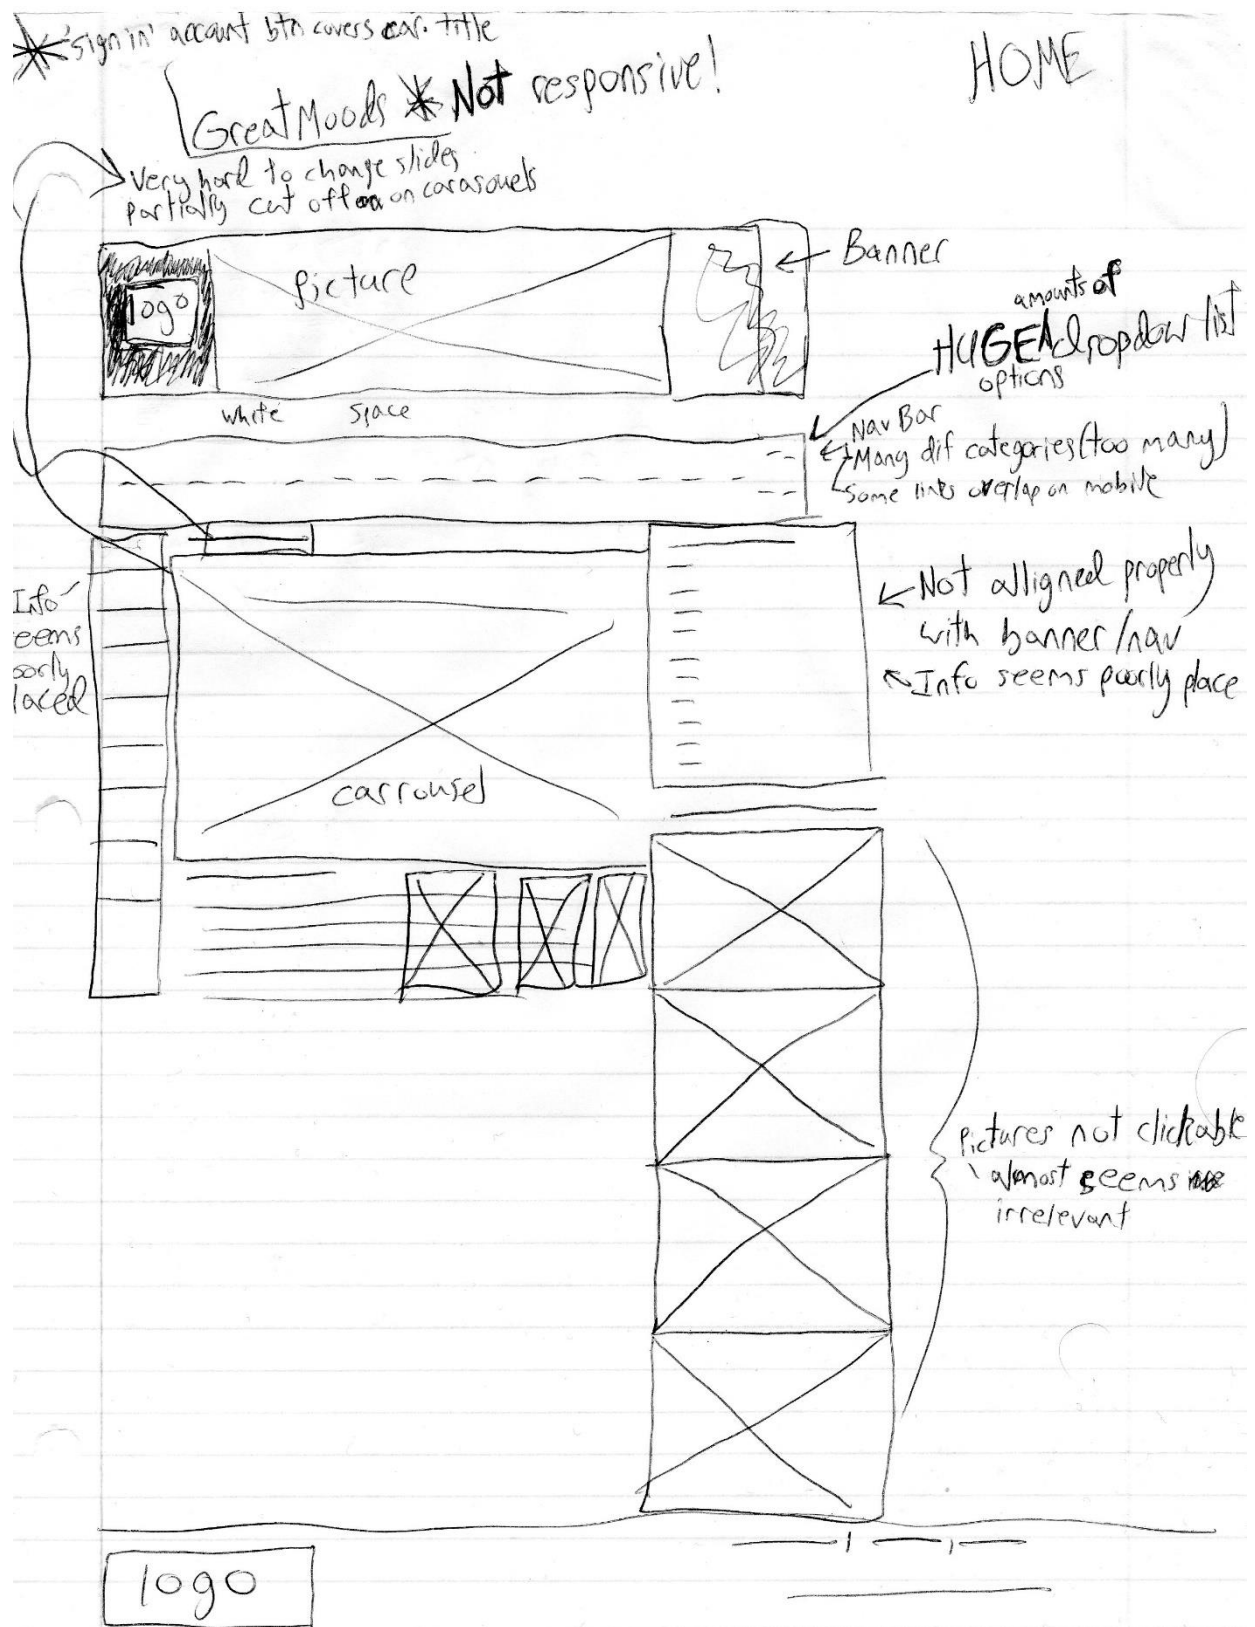 'sign in' account btn covers car. title
HOME
GreatMoods * Not responsive!
Very hard to change slides
partially cut off on carasouels
Banner
logo
picture
amounts of
HUGE dropdow list
options
white space
Nav Bar
Many dif categories (too many)
Some links overlap on mobile
Info
eems
oorly
laced
Not alligned properly
with banner/nav
Info seems poorly place
carrousel
Pictures not clickable
almost seems
irrelevant
logo